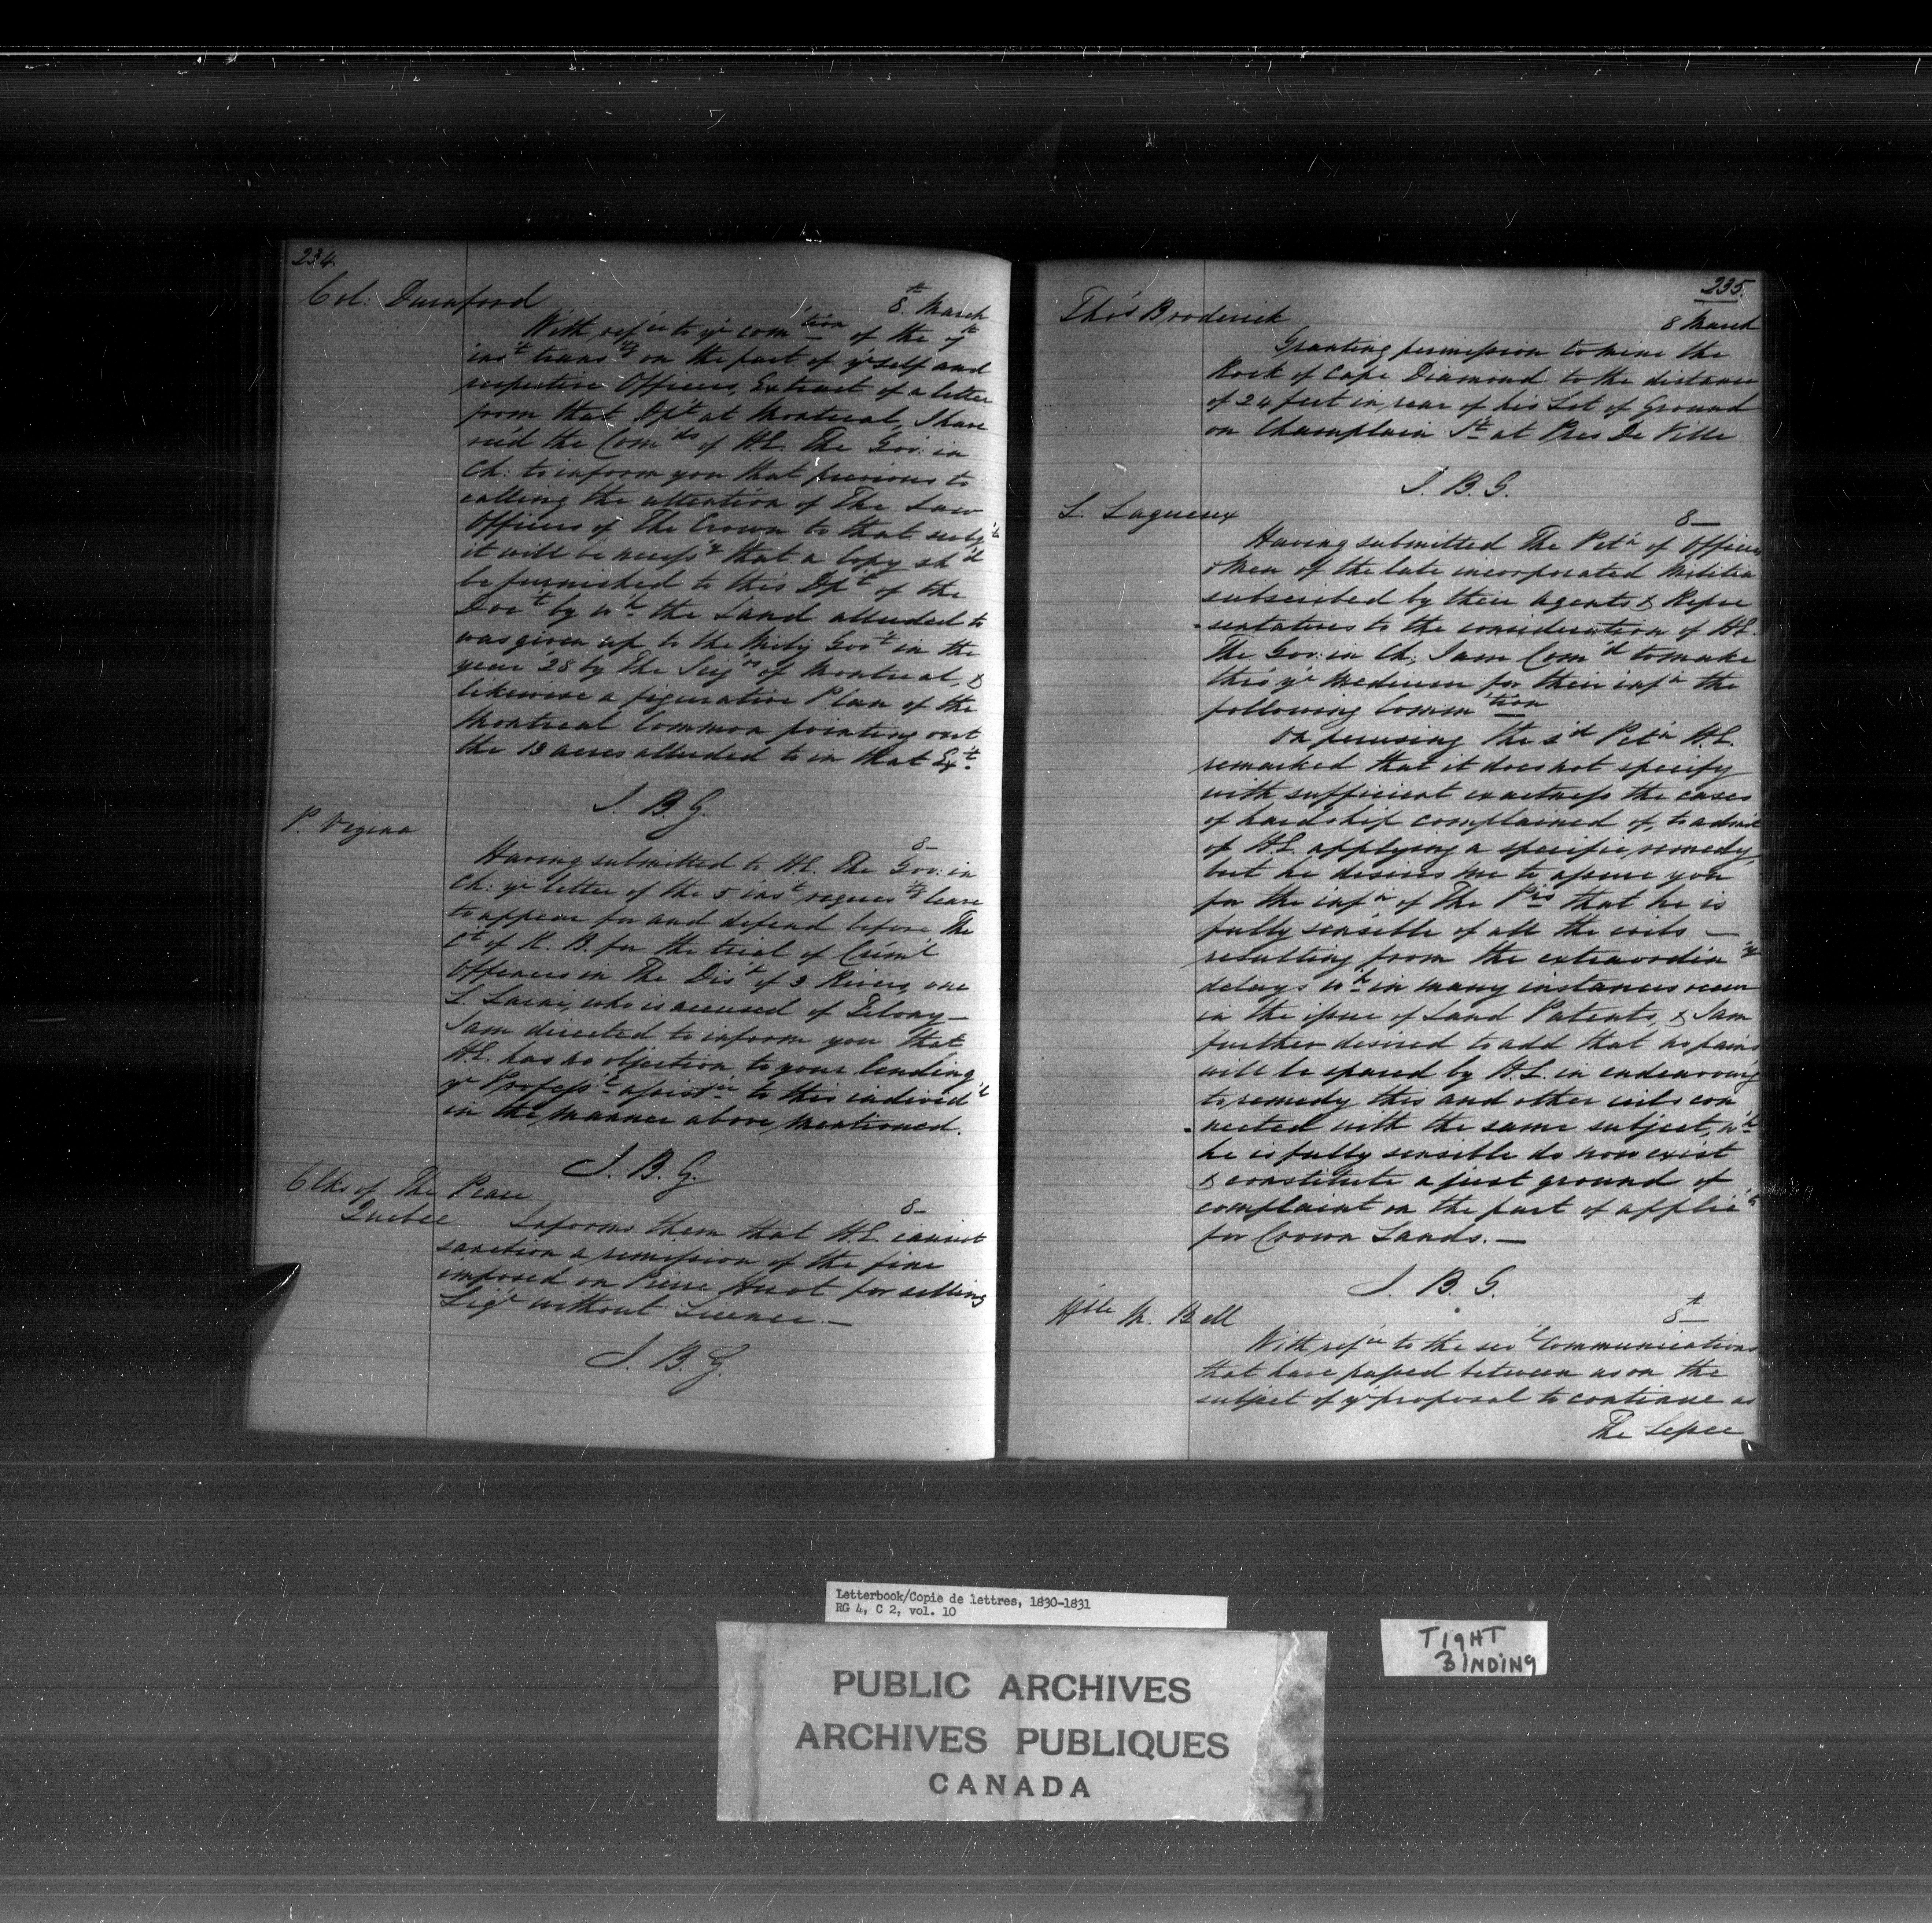 234.
Col: Durnford
8th March
With refce to yr com'tion of the 7th
inst transtg on the part of yrself and
respective Officers, Extract of a letter
from that Dpt at Montreal, I have
rec'd the Com'ds of H.E. The Gov: in
Ch: to inform you that previous to
calling the attention of The Law
Officers of The Crown to that subjt
it will be necessy that a Copy sh'd
be furnished to this Dpt of the
Doct by wh the Land alluded to
was given up to the Mily Govt in the
year '28 by The Seigrs of Montreal, &
likewise a figurative Plan of the
Montreal Common pointing out
the 13 acres alluded to in that Ext
J. B. G.
P. Vezina
8-
Having submitted to H.E. The Gov: in
Ch: yr letter of the 5 inst requestg leave
to appear for and defend before The
Ct of K. B. for the trial of Crim'l
Offences in The Dist of 3 Rivers, one
L. who is accused of Felony—
I am directed to inform you that
H.E. has no objection to your lending
yr Professl assistce to this individ'l
in the manner above mentioned.
J. B. G.
Clks of The Peace
Quebec
8-
Informs them that H.E. cannot
sanction a remission of the fine
imposed on Pierre Huot for selling
Liqr without Licence.—
J. B. G.
235.
Thos Broderick
8 March
Granting permission to mine the
Rock of Cape Diamond to the distance
of 24 feet in rear of his Lot of Ground
on Champlain St at Pres De Ville
J. B. G.
L. Lagueux
8—
Having submitted The Pet'n of Officers
& Men of the late incorporated Militia
subscribed by their Agents & Repre
-sentatives to the consideration of H.E.
The Gov: in Ch; I am Com'd to make
thro' yr Medium for their inf'n the
following Comm'tion
On perusing the s'd Pet'n H.E.
remarked that it does not specify
with sufficient exactness the cases
of hardship complained of, to admit
of H.E. applying a specific remedy,
but he desires me to assure you
for the inf'n of The P'rs that he is
fully sensible of all the evils —
resulting from the extraordin'y
delays wh in many instances occur
in the issue of Land Patents, & I am
further desired to add that no pains
will be spared by H.E. in endeavourg
to remedy this and other evils con
-nected with the same subject, wh
he is fully sensible do now exist
& constitute a just ground of
complaint on the part of applic'ts
for Crown Lands. —
J. B. G.
Hble M. Bell
8th
With refce to the sev'l Communications
that have passed between us on the
subject of yr proposal to continue as
The Lessee
Letterbook/Copie de lettres, 1830-1831
RG 4, C 2, vol. 10
PUBLIC ARCHIVES
ARCHIVES PUBLIQUES
CANADA
TIGHT
BINDING